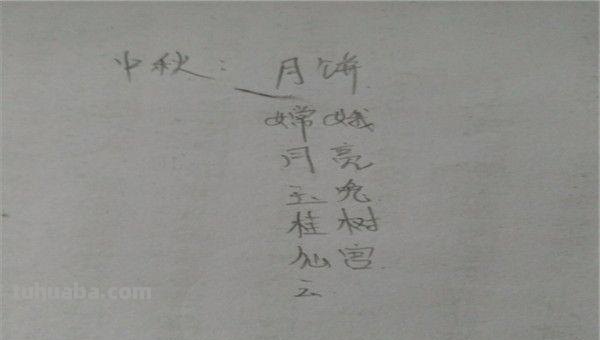 中秋：月饼
嫦娥
月亮
玉兔
桂树
仙宫
云
tuhuaba.com